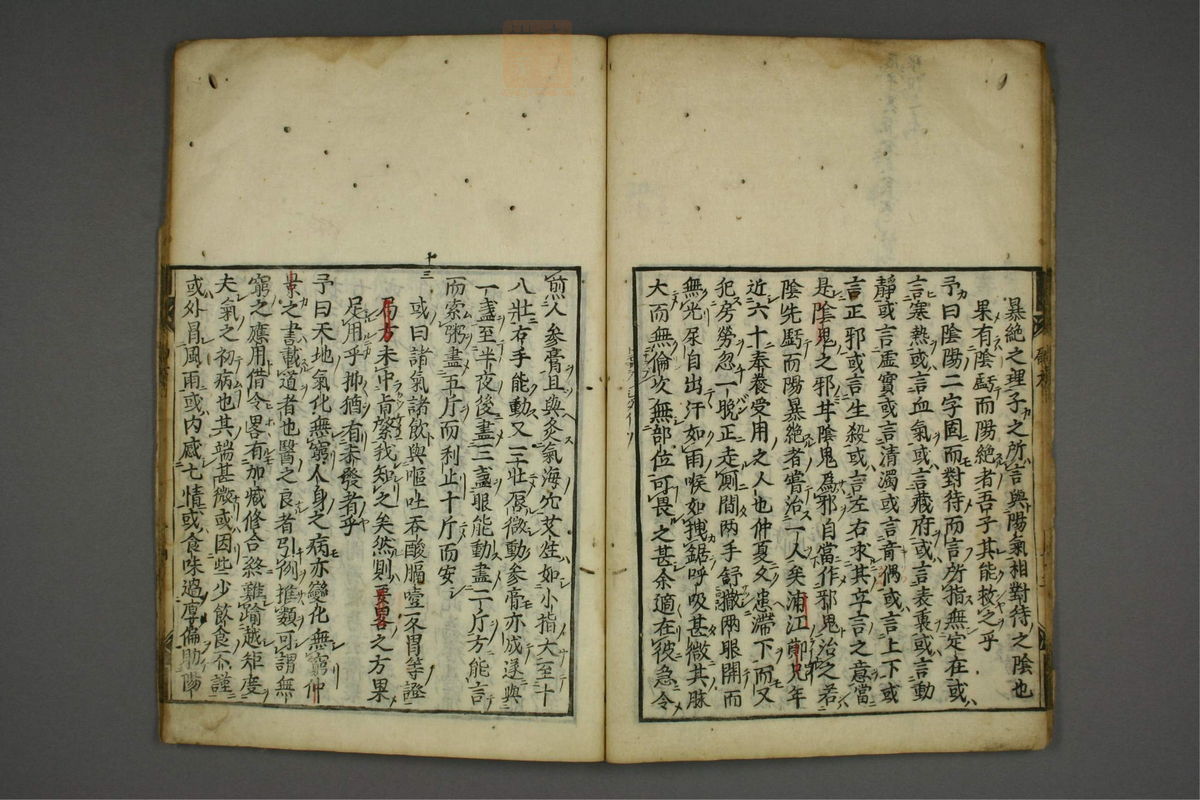 暴絶之理子之所言與陽氣相對待之陰也
果有陰虧而陽絶者吾子其能救之乎
予曰陰陽二字固而對待而言所指無定在或
言寒熱或言血氣或言蔵府或言表裏或言動
靜或言虛實或言清濁或言竒偶或言上下或
言正邪或言生殺或言左右求其立言之意當
是陰鬼之邪耳陰鬼爲邪自當作邪鬼治之若
陰先虧而陽暴絶者嘗治一人矣浦江鄭兄年
近六十奉養受用之人也仲夏久患滯下而又
犯房勞忽一晚正走厠間兩手舒撒兩眼開而
無光尿自出汗如雨喉如拽鋸呼吸甚微其脉
大而無倫次無部位可畏之甚余適在彼急令
煎人参膏且與灸氣海穴艾炷如小指大至十
八壮右手能動又三壮唇微動参膏亦成遂與
一盞至半夜後盡三盞眼能動盡二斤方能言
而索粥盡五斤而利止十斤而安
十三
或曰諸氣諸飲與嘔吐吞酸膈噎反胃等證
局方未中肯綮我知之矣然則要畧之方果
足用乎抑猶有未發者乎
予曰天地氣化無窮人身之病亦變化無窮仲
景之書載道者也醫之良者引例推類可謂無
窮之應用借令畧有加减修合終難踰越矩度
夫氣之初病也其端甚微或因些少飲食不謹
或外冒風雨或内感七情或食味過厚偏助陽